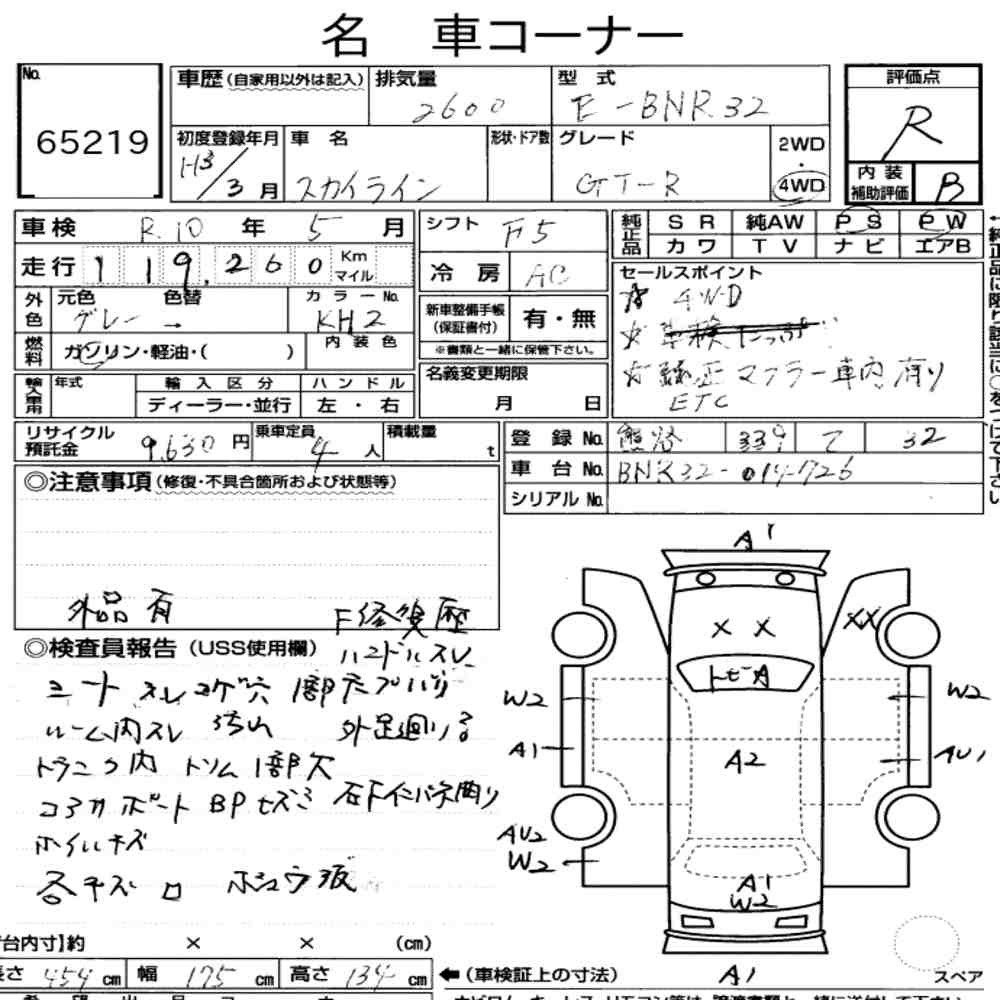 名 車コーナー
No.
65219
車歴(自家用以外は記入)
排気量
2600
型 式
E-BNR32
評価点
R
初度登録年月
H3/3月
車 名
スカイライン
形状・ドア数
グレード
GT-R
2WD
・
4WD
内 装
補助評価
B
車検 R.10 年 5 月
シフト F5
純正品
SR 純AW PS PW
カワ TV ナビ エアB
走行 119,260 Km
マイル
冷 房 AC
セールスポイント
☆ 4WD
☆ 車検たっぷり
☆ 純正マフラー車内有り
ETC
外色
元色 色替
グレー →
カラーNo.
KH2
新車整備手帳
(保証書付)
有・無
※書類と一緒に保管下さい。
燃料
ガソリン・軽油・( )
内 装 色
名義変更期限
月 日
輸入車用
年式
輸 入 区 分
ディーラー・並行
ハ ン ド ル
左 ・ 右
リサイクル
預託金
9,630 円
乗車定員
4 人
積載量
t
登 録 No. 339 32
車 台 No. BNR32-014726
シリアル No.
◎注意事項(修復・不具合箇所および状態等)
外品有
F修復歴
◎検査員報告 (USS使用欄)
ハンドルスレ
シートスレコゲ穴 1部欠
ルーム内スレ汚れ 外足廻り
トランク内 トリム1部欠
コアサポート BPヒズミ 右F
ホイルキズ
各キズ
A1
XX
XX
トビA
W2
W2
A1
A2
AU1
AU2
W2
A1
W2
A1
スペア
台内寸】約 × × (cm)
長さ 454 cm 幅 175 cm 高さ 134 cm
←(車検証上の寸法)